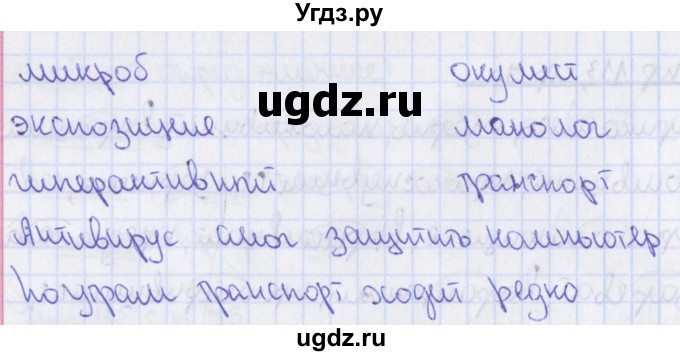 Угдз.ру
микроб окулист
ugdz.ru
экспозиция. монолог
гиперактивный транспорт
Антивирус смог защитить компьютер
По утрам транспорт ходит редко
ugdz.ru